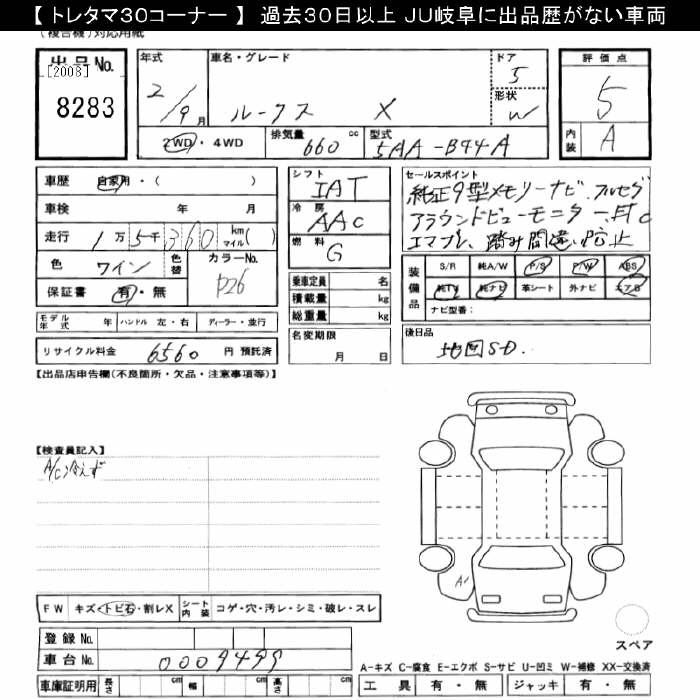 【 トレタマ30コーナー 】 過去30日以上 JU岐阜に出品歴がない車両
(複合機)対応用紙
出品No. [2008] 8283
年式 2/9月
車名・グレード ルークス X
ドア 5
形状 W
評価点 5
内装 A
2WD・4WD
排気量 660 cc
型式 5AA-B44A
車歴 自家用・( )
車検 年 月
走行 1万5千360 km マイル( )
色 ワイン 色替
カラーNo. P26
保証書 有・無
シフト IAT
冷房 AAC
燃料 G
乗車定員 名
積載量 kg
総重量 kg
名変期限 月 日
セールスポイント
純正9型メモリーナビ、フルセグ
アラウンドビューモニター、ETC
エマブレ、踏み間違い防止
装備品 S/R 純A/W P/S P/W ABS
純TV 純ナビ 革シート 外ナビ エアB
ナビ型番:
モデル年式 年 ハンドル 左・右 ディーラー・並行
リサイクル料金 6560 円 預託済
後日品 地図SD.
【出品店申告欄(不良箇所・欠品・注意事項等)】
【検査員記入】
A/C冷えず
A1
FW キズ・トビ石・割レX シート内装 コゲ・穴・汚レ・シミ・破レ・スレ
登録No.
車台No. 0009499
スペア
A-キズ C-腐食 E-エクボ S-サビ U-凹ミ W-補修 XX-交換済
車庫証明用 長さ cm 幅 cm 高さ cm 工具 有・無 ジャッキ 有・無